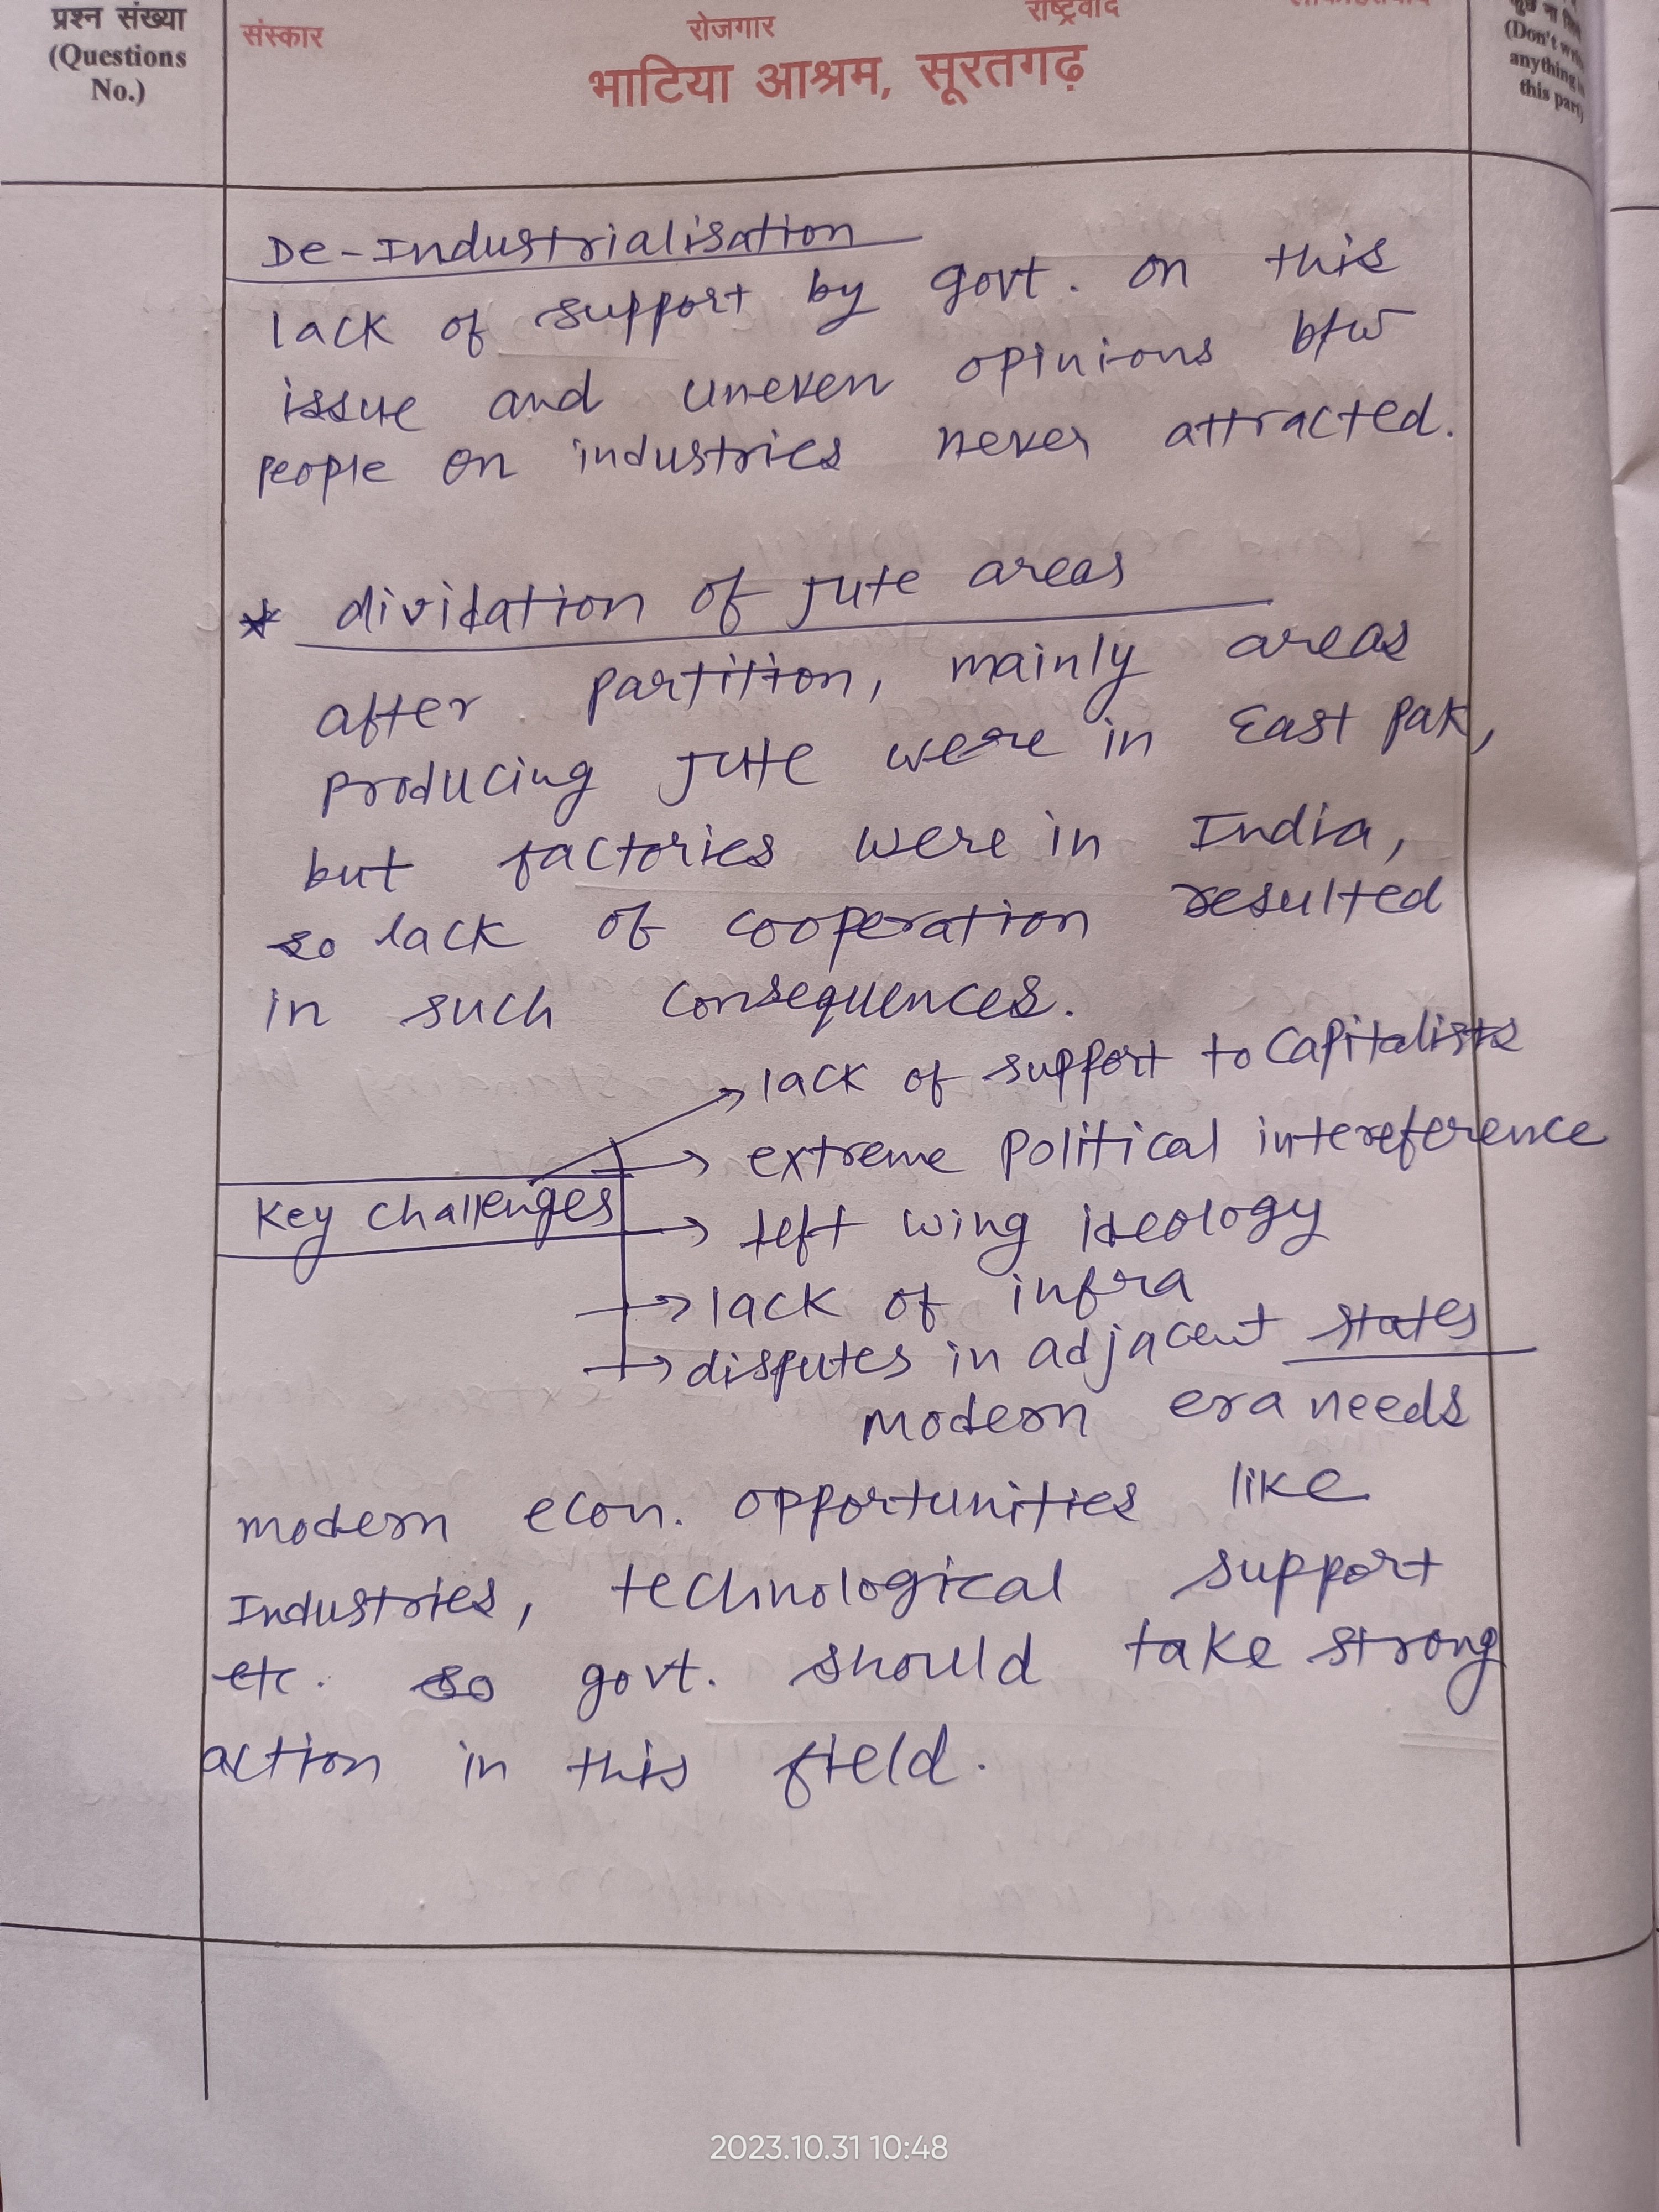 प्रश्न संख्या
(Questions
No.)
संस्कार
रोजगार
राष्ट्रवाद
भाटिया आश्रम, सूरतगढ़
(Don't
anything
this part)
De-Industrialisation
lack of support by govt. on this
issue and uneven opinions btw
people on industries never attracted.
* dividation of Jute areas
after partition, mainly areas
producing Jute were in East Pak,
but factories were in India,
so lack of cooperation resulted
in such consequences.
Key challenges
→ lack of support to Capitalists
→ extreme political intereference
→ left wing ideology
→ lack of infra
→ disputes in adjacent states
modern era needs
modern econ. opportunities like
Industries, technological support
etc. so govt. should take strong
action in this field.
2023.10.31 10:48